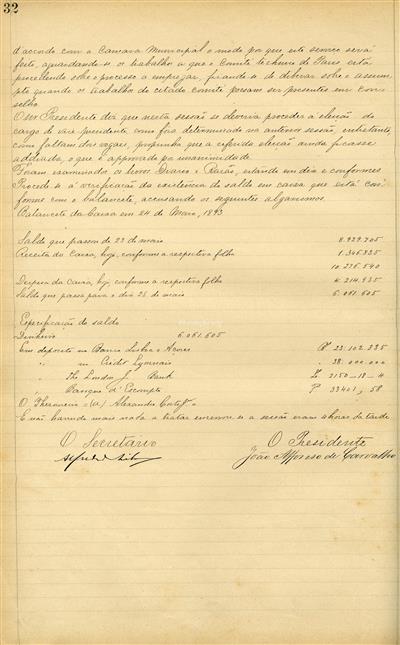 32
d'accordo com a Camara Municipal o modo por que este serviço será
feito, aguardando-se os trabalhos a que o Comité technico de Paris está
procedendo sobre o processo a empregar, ficando-se de deliberar sobre o assum-
pto quando os trabalhos do citado comité possam ser presentes em Con-
selho.
O snr Presidente diz que nesta sessão se deveria proceder á eleição do
cargo de vice-presidente como fora determinado na anterior sessão, entretanto,
como faltam dois vogaes, propunha que a referida eleição ainda ficasse
addiada, o que é approvado por unanimidade.
Foram examinados os livros Diario e Razão, estando em dia e conformes.
Procede-se á verificação da existencia do saldo em caixa que está con-
forme com o balancete, accusando os seguintes algarismos.
Balancete da Caixa em 24 de Maio, 1893
Saldo que passou de 23 de maio 8.929.705
Receita da Caixa, hoje, conforme a respectiva folha 1.346.835
10.276.540
Despeza da caixa, hoje, conforme a respectiva folha 4.214.935
Saldo que passa para o dia 25 de maio 6.061.605
Especificação do saldo
Dinheiro 6.061.605
Em deposito no Banco Lisboa e Açores 22.102.335
" no Crédit Lyonnais 38.000.000
" The London Bank £ 2150-18-4
" d'Escompte 33401,58
O Thesoureiro (a) Alexandre
E não havendo mais nada a tratar encerrou-se a sessão eram 4 horas da tarde
O Secretario O Presidente
João Affonso de Carvalho